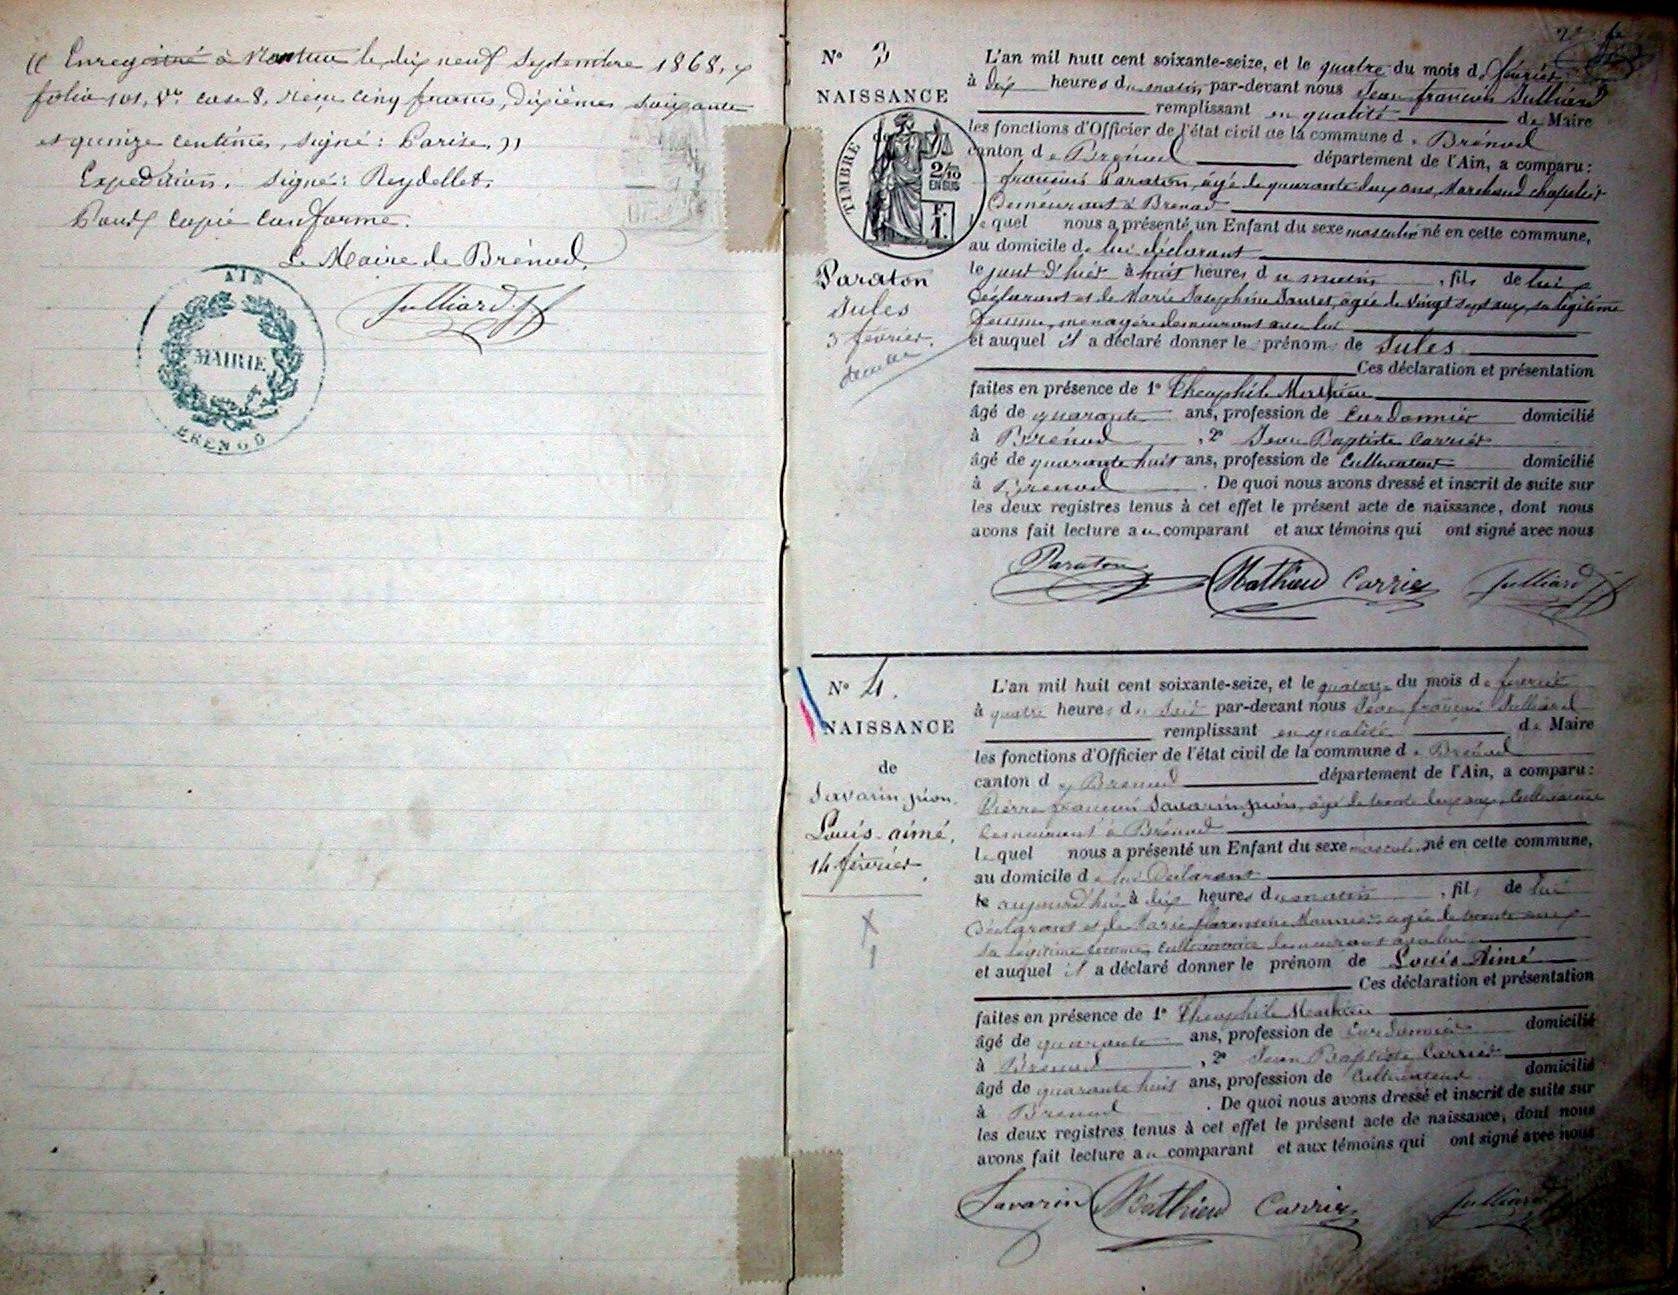 (( Enregistré à Nantua le dix neuf Septembre 1868,
folio 101, V° case 8, reçu cinq francs, dixièmes soixante
et quinze centimes, signé: Parise. ))
Expédition. Signé: Reydellet.
Pour copie conforme.
Le Maire de Brénod,
Julliard Jf
AIN
MAIRIE
BRENOD
N° 3
NAISSANCE
de
TIMBRE
2/10
EN SUS
F.
1.
Paraton
Jules
3 février.
L'an mil huit cent soixante-seize, et le quatre du mois de février
à dix heures du matin par-devant nous Jean françois Julliard
remplissant en qualité de Maire
les fonctions d'Officier de l'état civil de la commune de Brénod
canton de Brénod département de l'Ain, a comparu:
françois Paraton, âgé de quarante deux ans, Marchand chapelier
Demeurant à Brénod
lequel nous a présenté un Enfant du sexe masculin né en cette commune,
au domicile de lui déclarant
le jour d'hier à huit heures du matin, fils de lui
Déclarant et de Marie Josephine Jantet, âgée de vingt sept ans, sa légitime
femme, ménagère demeurant avec lui
et auquel il a déclaré donner le prénom de Jules
Ces déclaration et présentation
faites en présence de 1° Théophile Mathieu
âgé de quarante ans, profession de Cordonnier domicilié
à Brénod, 2° Jean Baptiste Carrier
âgé de quarante huit ans, profession de Cultivateur domicilié
à Brénod. De quoi nous avons dressé et inscrit de suite sur
les deux registres tenus à cet effet le présent acte de naissance, dont nous
avons fait lecture au comparant et aux témoins qui ont signé avec nous
Paraton Mathieu Carrier Julliard Jf
N° 4.
NAISSANCE
de
Savarin-pion.
Louis-aimé,
14 février.
L'an mil huit cent soixante-seize, et le quatorze du mois de février
à quatre heures du Soir par-devant nous Jean françois Julliard
remplissant en qualité de Maire
les fonctions d'Officier de l'état civil de la commune de Brénod
canton de Brénod département de l'Ain, a comparu:
Pierre françois Savarin-pion, âgé de trente deux ans, Cultivateur
Demeurant à Brénod
lequel nous a présenté un Enfant du sexe masculin né en cette commune,
au domicile de lui Déclarant
le aujourd'hui à dix heures du matin, fils de lui
Déclarant et de Marie florentine âgée de trente
sa légitime femme, cultivatrice demeurant avec lui
et auquel il a déclaré donner le prénom de Louis Aimé
Ces déclaration et présentation
faites en présence de 1° Théophile Mathieu
âgé de quarante ans, profession de Cordonnier domicilié
à Brénod, 2° Jean Baptiste Carrier
âgé de quarante huit ans, profession de Cultivateur domicilié
à Brénod. De quoi nous avons dressé et inscrit de suite sur
les deux registres tenus à cet effet le présent acte de naissance, dont nous
avons fait lecture au comparant et aux témoins qui ont signé avec nous
Savarin Mathieu Carrier Julliard